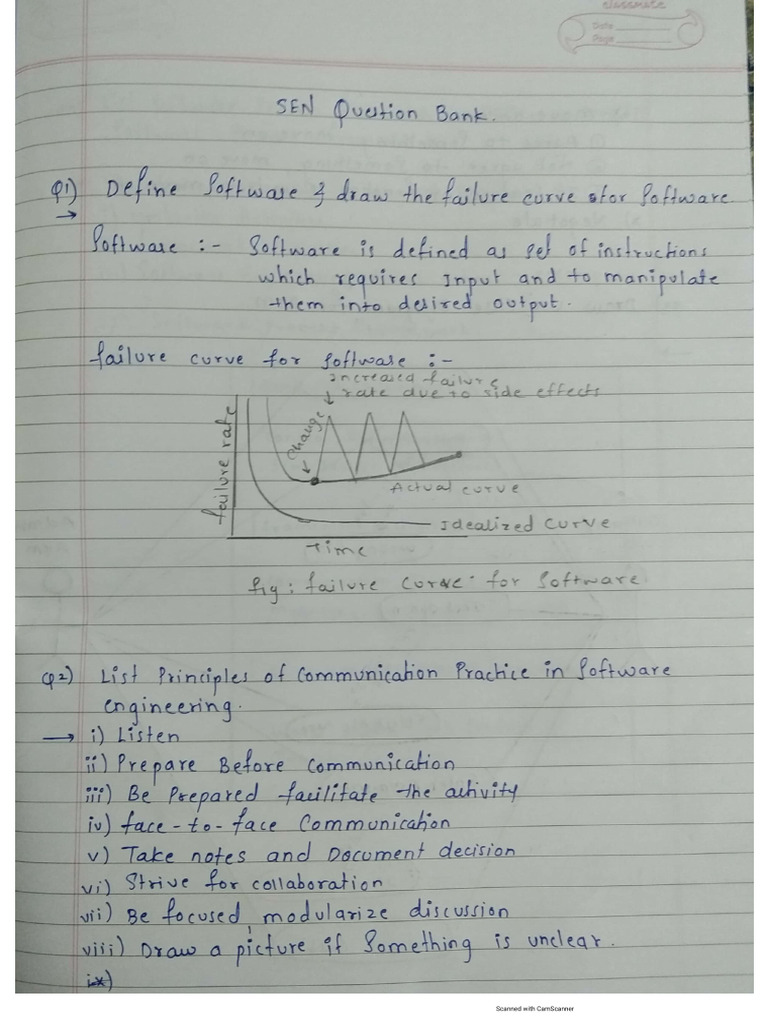 classmate
Date
Page
SEN Question Bank.
Q1) Define Software & draw the failure curve for Software.
→
Software :- Software is defined as set of instructions
which requires Input and to manipulate
them into desired output.
failure curve for software :-
increased failure
rate due to side effects
change
failure rate
Actual curve
Idealized curve
Time
fig: failure curve for software
Q2) List Principles of Communication Practice in Software
engineering.
→ i) Listen
ii) Prepare Before communication
iii) Be Prepared facilitate the activity
iv) face-to-face Communication
v) Take notes and Document decision
vi) Strive for collaboration
vii) Be focused, modularize discussion
viii) Draw a picture if Something is unclear.
ix)
Scanned with CamScanner